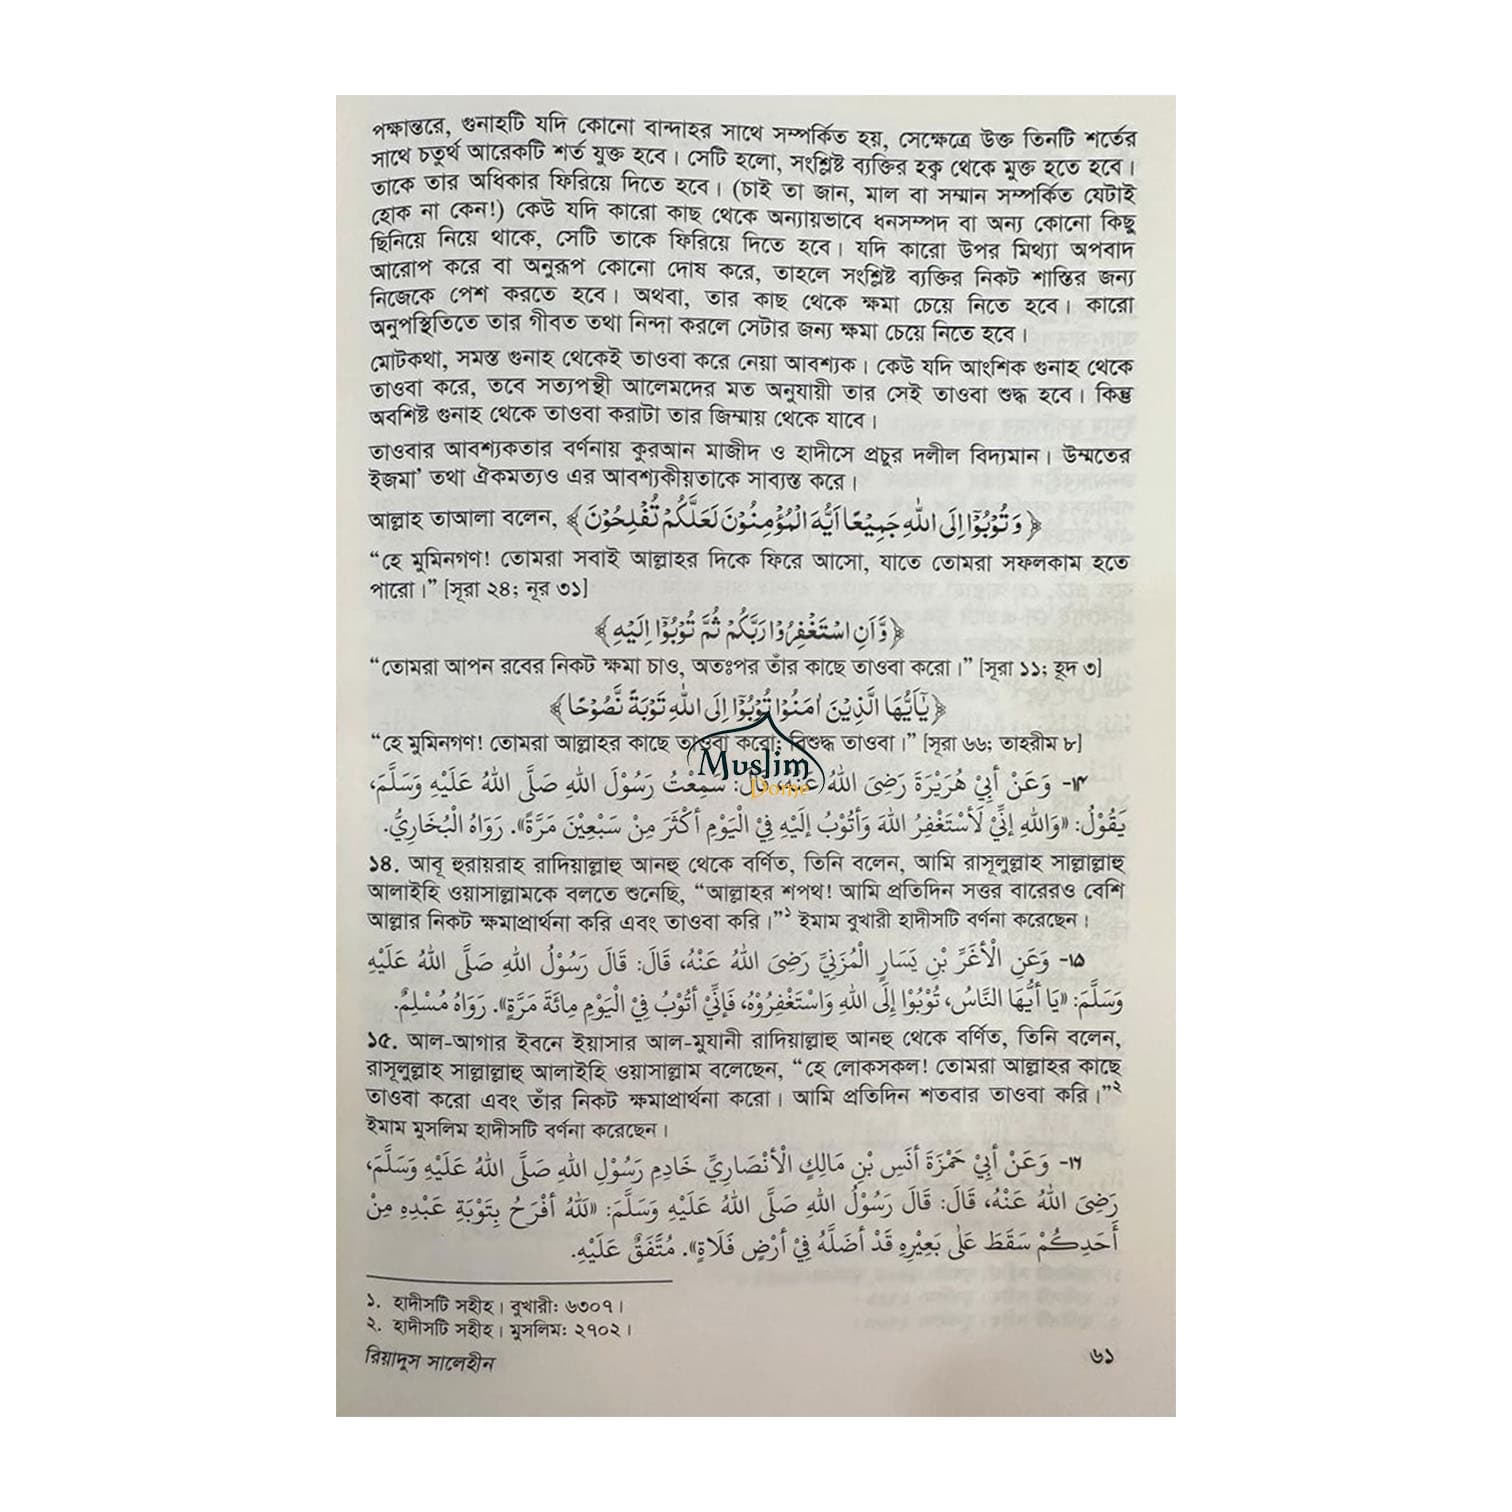 পক্ষান্তরে, গুনাহটি যদি কোনো বান্দাহর সাথে সম্পর্কিত হয়, সেক্ষেত্রে উক্ত তিনটি শর্তের
সাথে চতুর্থ আরেকটি শর্ত যুক্ত হবে। সেটি হলো, সংশ্লিষ্ট ব্যক্তির হক্ব থেকে মুক্ত হতে হবে।
তাকে তার অধিকার ফিরিয়ে দিতে হবে। (চাই তা জান, মাল বা সম্মান সম্পর্কিত যেটাই
হোক না কেন!) কেউ যদি কারো কাছ থেকে অন্যায়ভাবে ধনসম্পদ বা অন্য কোনো কিছু
ছিনিয়ে নিয়ে থাকে, সেটি তাকে ফিরিয়ে দিতে হবে। যদি কারো উপর মিথ্যা অপবাদ
আরোপ করে বা অনুরূপ কোনো দোষ করে, তাহলে সংশ্লিষ্ট ব্যক্তির নিকট শাস্তির জন্য
নিজেকে পেশ করতে হবে। অথবা, তার কাছ থেকে ক্ষমা চেয়ে নিতে হবে। কারো
অনুপস্থিতিতে তার গীবত তথা নিন্দা করলে সেটার জন্য ক্ষমা চেয়ে নিতে হবে।
মোটকথা, সমস্ত গুনাহ থেকেই তাওবা করে নেয়া আবশ্যক। কেউ যদি আংশিক গুনাহ থেকে
তাওবা করে, তবে সত্যপন্থী আলেমদের মত অনুযায়ী তার সেই তাওবা শুদ্ধ হবে। কিন্তু
অবশিষ্ট গুনাহ থেকে তাওবা করাটা তার জিম্মায় থেকে যাবে।
তাওবার আবশ্যকতার বর্ণনায় কুরআন মাজীদ ও হাদীসে প্রচুর দলীল বিদ্যমান। উম্মতের
ইজমা’ তথা ঐকমত্যও এর আবশ্যকীয়তাকে সাব্যস্ত করে।
আল্লাহ তাআলা বলেন, ﴿وَتُوْبُوْٓا اِلَى اللّٰهِ جَمِيْعًا اَيُّهَ الْمُؤْمِنُوْنَ لَعَلَّكُمْ تُفْلِحُوْنَ﴾
“হে মুমিনগণ! তোমরা সবাই আল্লাহর দিকে ফিরে আসো, যাতে তোমরা সফলকাম হতে
পারো।” [সূরা ২৪; নূর ৩১]
﴿وَّاَنِ اسْتَغْفِرُوْا رَبَّكُمْ ثُمَّ تُوْبُوْٓا اِلَيْهِ﴾
“তোমরা আপন রবের নিকট ক্ষমা চাও, অতঃপর তাঁর কাছে তাওবা করো।” [সূরা ১১; হূদ ৩]
﴿يٰٓاَيُّهَا الَّذِيْنَ اٰمَنُوْا تُوْبُوْٓا اِلَى اللّٰهِ تَوْبَةً نَّصُوْحًا﴾
“হে মুমিনগণ! তোমরা আল্লাহর কাছে তাওবা করো; বিশুদ্ধ তাওবা।” [সূরা ৬৬; তাহরীম ৮]
Muslim
Dome
١٤- وَعَنْ أَبِيْ هُرَيْرَةَ رَضِىَ اللهُ عَنْهُ، قَالَ: سَمِعْتُ رَسُوْلَ اللهِ صَلَّى اللهُ عَلَيْهِ وَسَلَّمَ،
يَقُوْلُ: «وَاللهِ إِنِّيْ لَأَسْتَغْفِرُ اللهَ وَأَتُوْبُ إِلَيْهِ فِيْ الْيَوْمِ أَكْثَرَ مِنْ سَبْعِيْنَ مَرَّةً». رَوَاهُ الْبُخَارِيُّ.
১৪. আবূ হুরায়রাহ রাদিয়াল্লাহু আনহু থেকে বর্ণিত, তিনি বলেন, আমি রাসূলুল্লাহ সাল্লাল্লাহু
আলাইহি ওয়াসাল্লামকে বলতে শুনেছি, “আল্লাহর শপথ! আমি প্রতিদিন সত্তর বারেরও বেশি
আল্লার নিকট ক্ষমাপ্রার্থনা করি এবং তাওবা করি।”১ ইমাম বুখারী হাদীসটি বর্ণনা করেছেন।
١٥- وَعَنِ الْأَغَرِّ بْنِ يَسَارٍ الْمُزَنِيِّ رَضِىَ اللهُ عَنْهُ، قَالَ: قَالَ رَسُوْلُ اللهِ صَلَّى اللهُ عَلَيْهِ
وَسَلَّمَ: «يَا أَيُّهَا النَّاسُ، تُوْبُوْا إِلَى اللهِ وَاسْتَغْفِرُوْهُ، فَإِنِّيْ أَتُوْبُ فِيْ الْيَوْمِ مِائَةَ مَرَّةٍ». رَوَاهُ مُسْلِمٌ.
১৫. আল-আগার ইবনে ইয়াসার আল-মুযানী রাদিয়াল্লাহু আনহু থেকে বর্ণিত, তিনি বলেন,
রাসূলুল্লাহ সাল্লাল্লাহু আলাইহি ওয়াসাল্লাম বলেছেন, “হে লোকসকল! তোমরা আল্লাহর কাছে
তাওবা করো এবং তাঁর নিকট ক্ষমাপ্রার্থনা করো। আমি প্রতিদিন শতবার তাওবা করি।”২
ইমাম মুসলিম হাদীসটি বর্ণনা করেছেন।
١٦- وَعَنْ أَبِيْ حَمْزَةَ أَنَسِ بْنِ مَالِكٍ الْأَنْصَارِيِّ خَادِمِ رَسُوْلِ اللهِ صَلَّى اللهُ عَلَيْهِ وَسَلَّمَ،
رَضِىَ اللهُ عَنْهُ، قَالَ: قَالَ رَسُوْلُ اللهِ صَلَّى اللهُ عَلَيْهِ وَسَلَّمَ: «لَلّٰهُ أَفْرَحُ بِتَوْبَةِ عَبْدِهِ مِنْ
أَحَدِكُمْ سَقَطَ عَلٰى بَعِيْرِهِ قَدْ أَضَلَّهُ فِيْ أَرْضٍ فَلَاةٍ». مُتَّفَقٌ عَلَيْهِ.
১. হাদীসটি সহীহ। বুখারী: ৬৩০৭।
২. হাদীসটি সহীহ। মুসলিম: ২৭০২।
রিয়াদুস সালেহীন ৬১